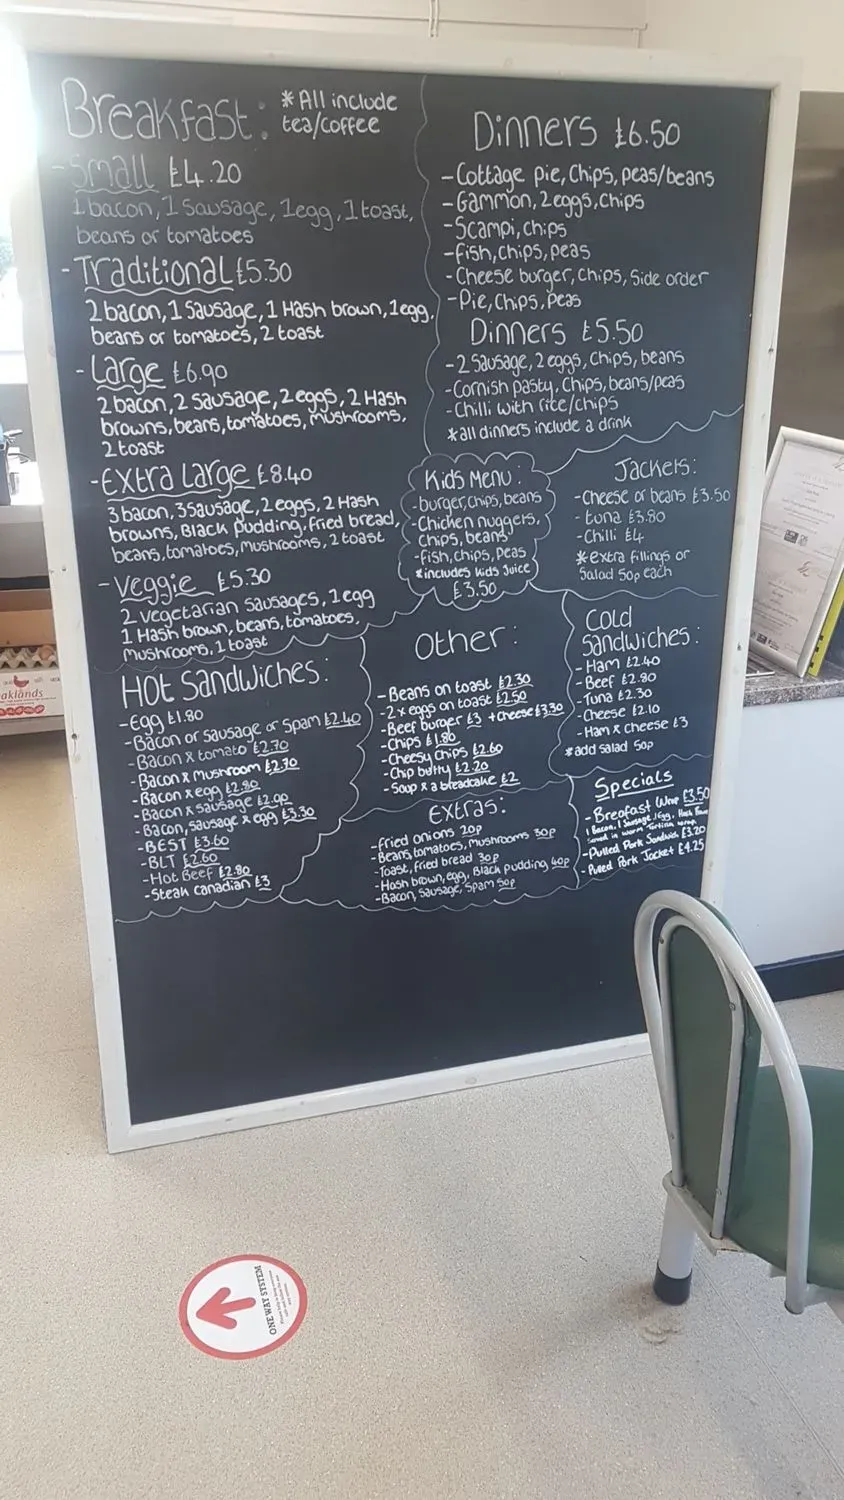 Breakfast:
*All include
tea/coffee
-Small £4.20
1 bacon, 1 Sausage, 1egg, 1 toast,
beans or tomatoes
-Traditional £5.30
2 bacon, 1 Sausage, 1 Hash brown, 1egg,
beans or tomatoes, 2 toast
-Large £6.90
2 bacon, 2 sausage, 2 eggs, 2 Hash
browns, beans, tomatoes, Mushrooms,
2 toast
-Extra Large £8.40
3 bacon, 3 Sausage, 2 eggs, 2 Hash
browns, Black pudding, fried bread,
beans, tomatoes, Mushrooms, 2 toast
-Veggie £5.30
2 vegetarian sausages, 1 egg
1 Hash brown, beans, tomatoes,
Mushrooms, 1 toast
Dinners £6.50
-Cottage pie, Chips, peas/beans
-Gammon, 2 eggs, chips
-Scampi, chips
-fish, chips, peas
-Cheese burger, chips, Side order
-Pie, Chips, Peas
Dinners £5.50
-2 Sausage, 2 eggs, Chips, beans
-Cornish pasty, Chips, beans/peas
-Chilli with rice/chips
*all dinners include a drink
Kids Menu:
-burger, chips, beans
-Chicken nuggets,
chips, beans
-fish, chips, peas
*includes kids Juice
£3.50
Jackets:
-Cheese or beans £3.50
-tuna £3.80
-Chilli £4
*extra fillings or
Salad 50p each
Hot Sandwiches:
-Egg £1.80
-Bacon or sausage or Spam £2.40
-Bacon x tomato £2.70
-Bacon x Mushroom £2.70
-Bacon x egg £2.80
-Bacon x sausage £2.90
-Bacon, sausage x egg £3.30
-BEST £3.60
-BLT £2.60
-Hot Beef £2.80
-Steak Canadian £3
Other:
-Beans on toast £2.30
-2x eggs on toast £2.50
-Beef burger £3 +cheese £3.30
-Chips £1.80
-Cheesy Chips £2.60
-Chip butty £2.20
-Soup x a breadcake £2
Cold
Sandwiches:
-Ham £2.40
-Beef £2.80
-Tuna £2.30
-Cheese £2.10
-Ham x cheese £3
*add salad 50p
Extras:
-fried onions 20p
-Beans, tomatoes, Mushrooms 30p
-Toast, fried bread 30p
-Hash brown, egg, Black pudding 40p
-Bacon, Sausage, Spam 50p
Specials
-Breafast Wrap £3.50
1 Bacon, 1 Sausage, 1 Egg, Hash Brown
Served in warm Tortilla wrap
-Pulled Pork Sandwich £3.20
-Pulled Pork Jacket £4.25
oaklands
ONE WAY SYSTEM